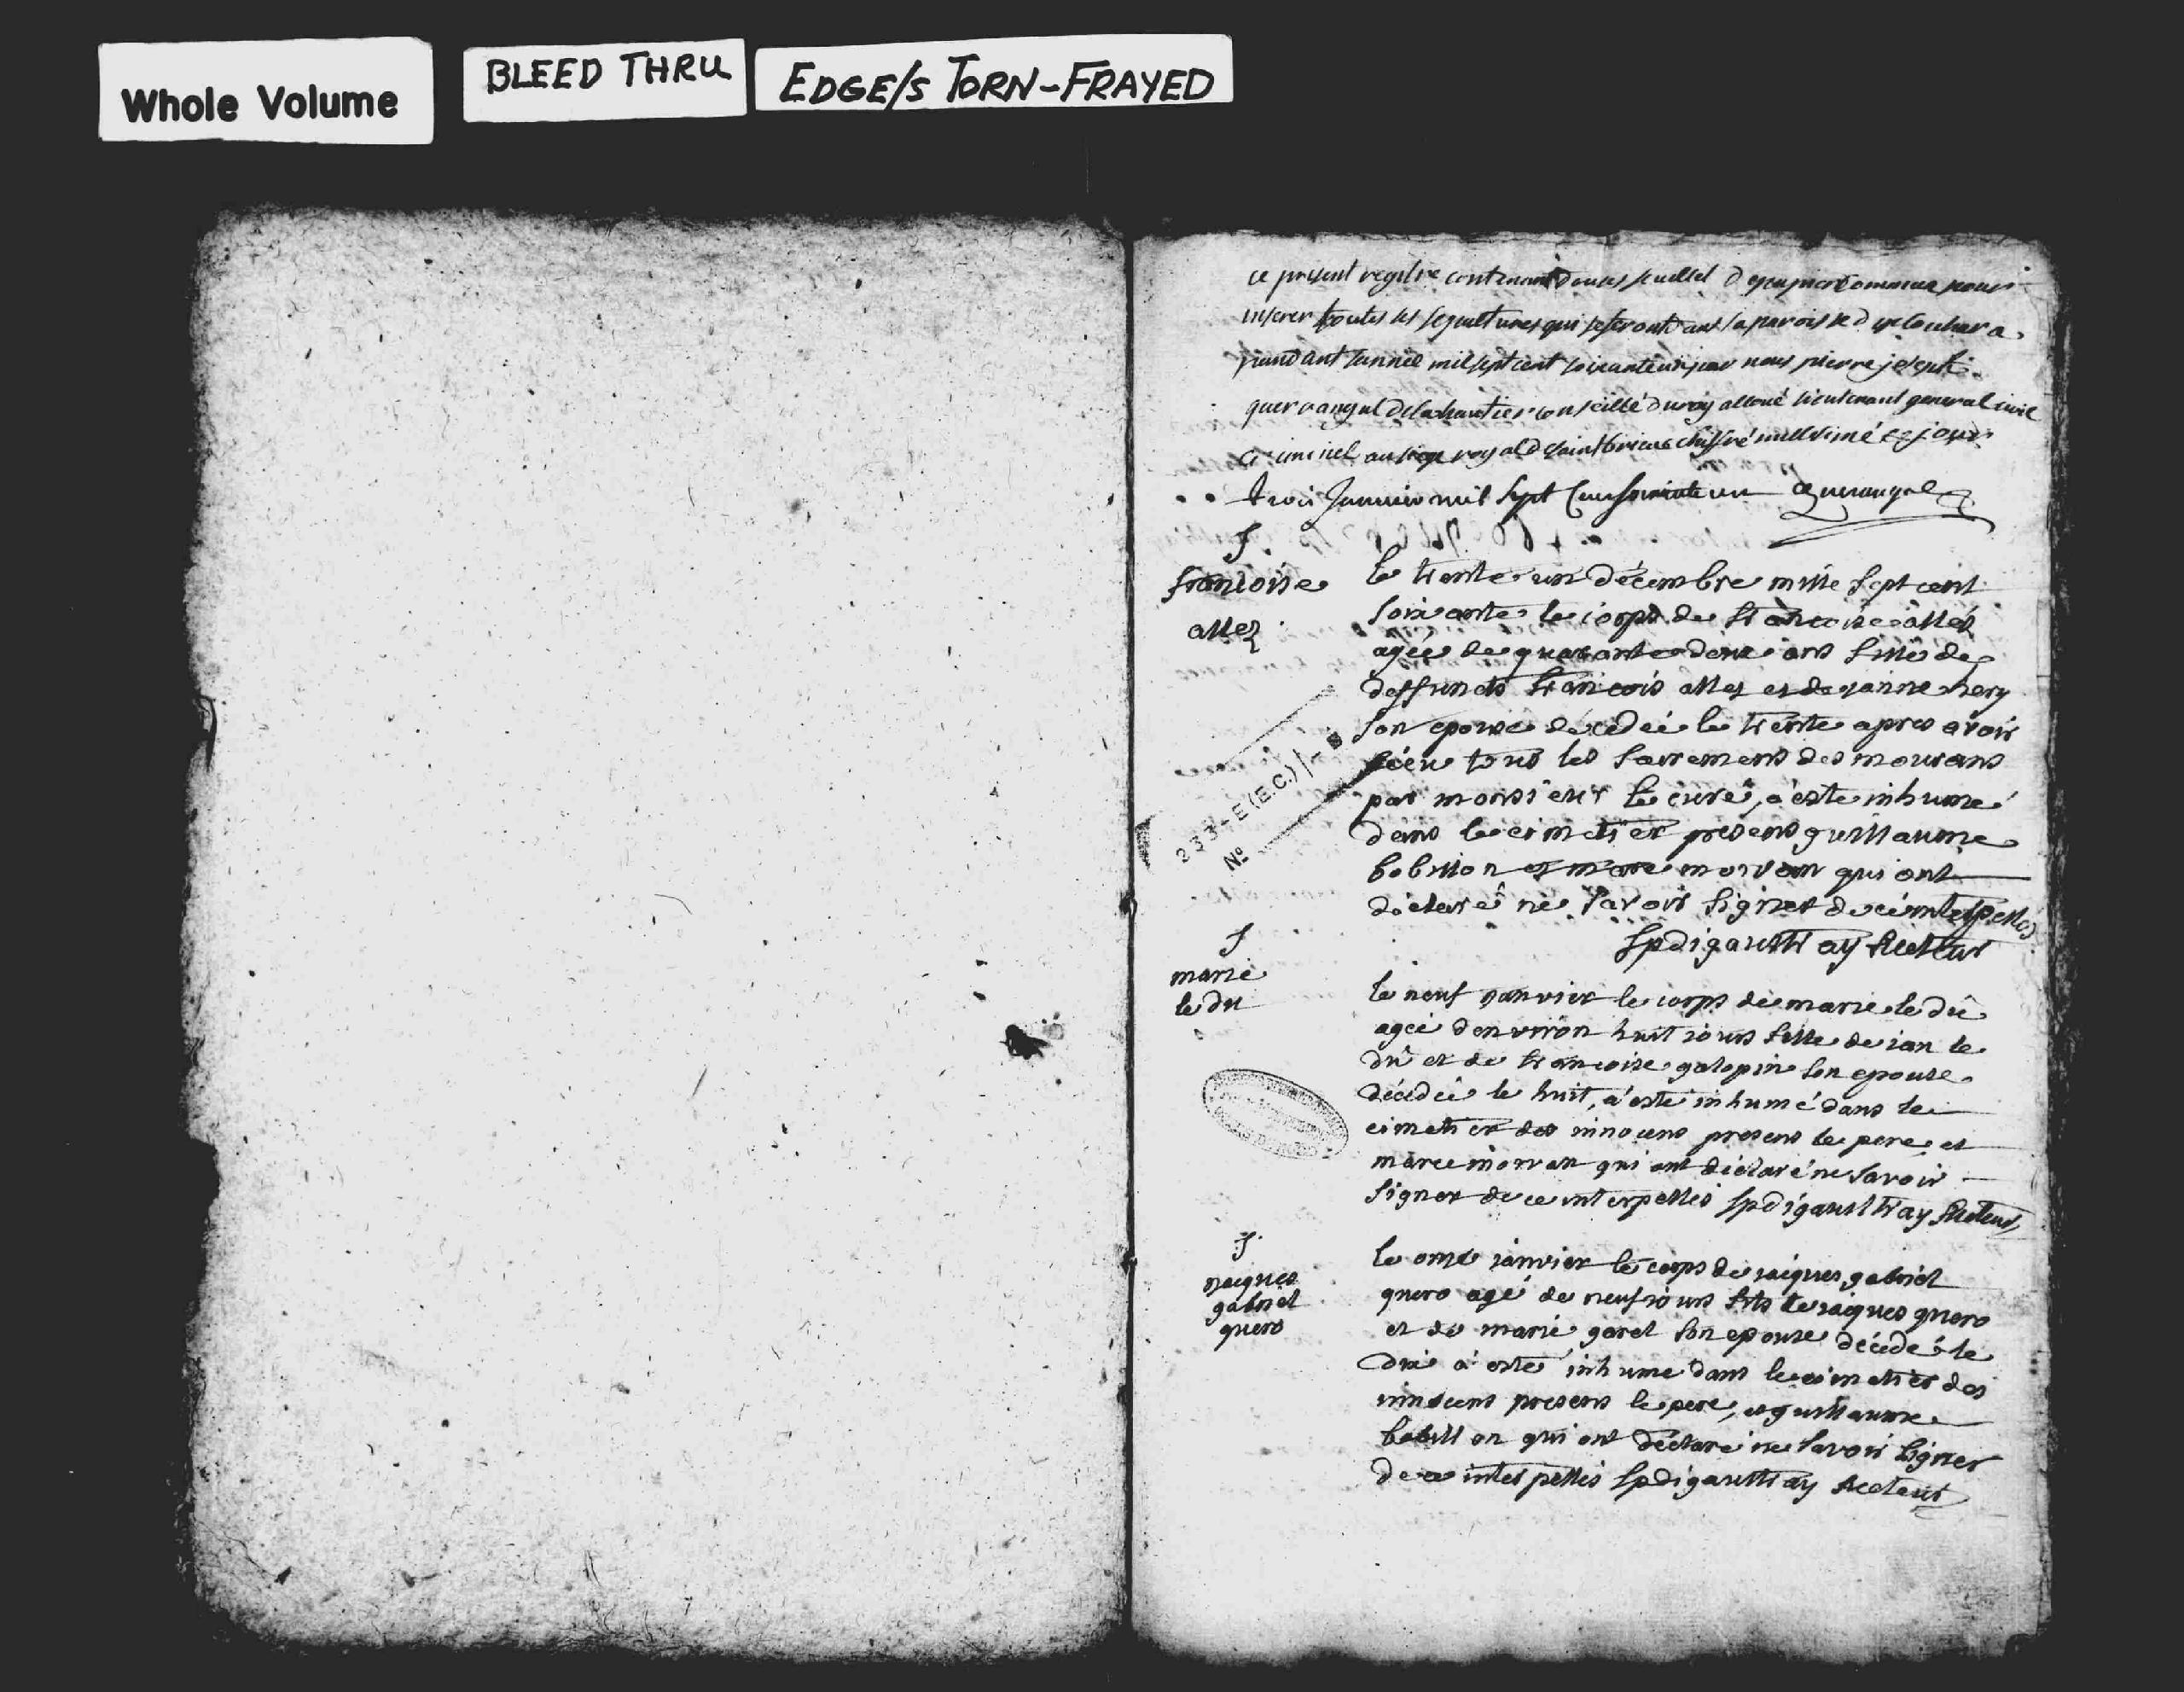 Whole Volume
BLEED THRU
EDGE/S TORN-FRAYED
ce present registre contenant douze feuillet d papier commun pour
inserer toutes les sepultures qui se feront dans la paroisse d
pandant l'annee mil sept cent soixante un par nous pierre joseph
querangal de la hautier conseillé du roy alloué lieutenant general civil
criminel au siege royal d saint brieuc chiffré millesimé ce jour
trois Janvier mil sept Cent soixante un Querangal
S
francoise
allez
le trente un décembre mille sept cent
soixante le corps de francoise allés
agée de quarante deux ans fille de
deffuncts francois allez et de janne hery
son epouse décedée le trente apres avoir
recu tous les sacremens des mourans
par monsieur le curé, a esté inhumé
dans le cimetier presens guillaume
bobillon et marc morvan qui ont
déclaré ne savoir signer de ce interpellés
spdigaultray Recteur
233-E(E.C.)/-8
Nº
S
marie
le du
le neuf janvier le corps de marie le dû
agée d'environ huit jours fille de jan le
dû et de francoise galopin son epouse
décedée le huit, a esté inhumé dans le
cimetier des innocens presens le pere et
marc morvan qui ont déclaré ne savoir
signer de ce interpellés spdigaultray Recteur
S
jacques
gabriel
quero
le onze janvier le corps de jacques gabriel
quero agé de neuf jours fils de jacques quero
et de marie garel son epouse décedé le
dix a esté inhumé dans le cimetier des
innocens presens le pere, et guillaume
bobillon qui ont déclaré ne savoir signer
de ce interpellés spdigaultray Recteur